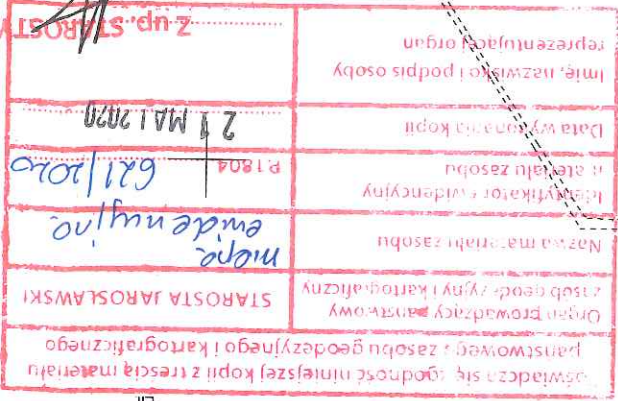 Poświadcza się zgodność niniejszej kopii z treścią materiału
państwowego zasobu geodezyjnego i kartograficznego
Organ prowadzący państwowy
zasób geodezyjny i kartograficzny
STAROSTA JAROSŁAWSKI
Nazwa materiału zasobu
mapa
ewidencyjna
Identyfikator ewidencyjny
materiału zasobu
P.1804
621/2020
Data wykonania kopii
21 MAJ 2020
Imię, nazwisko i podpis osoby
reprezentującej organ
Z up. STAROSTY